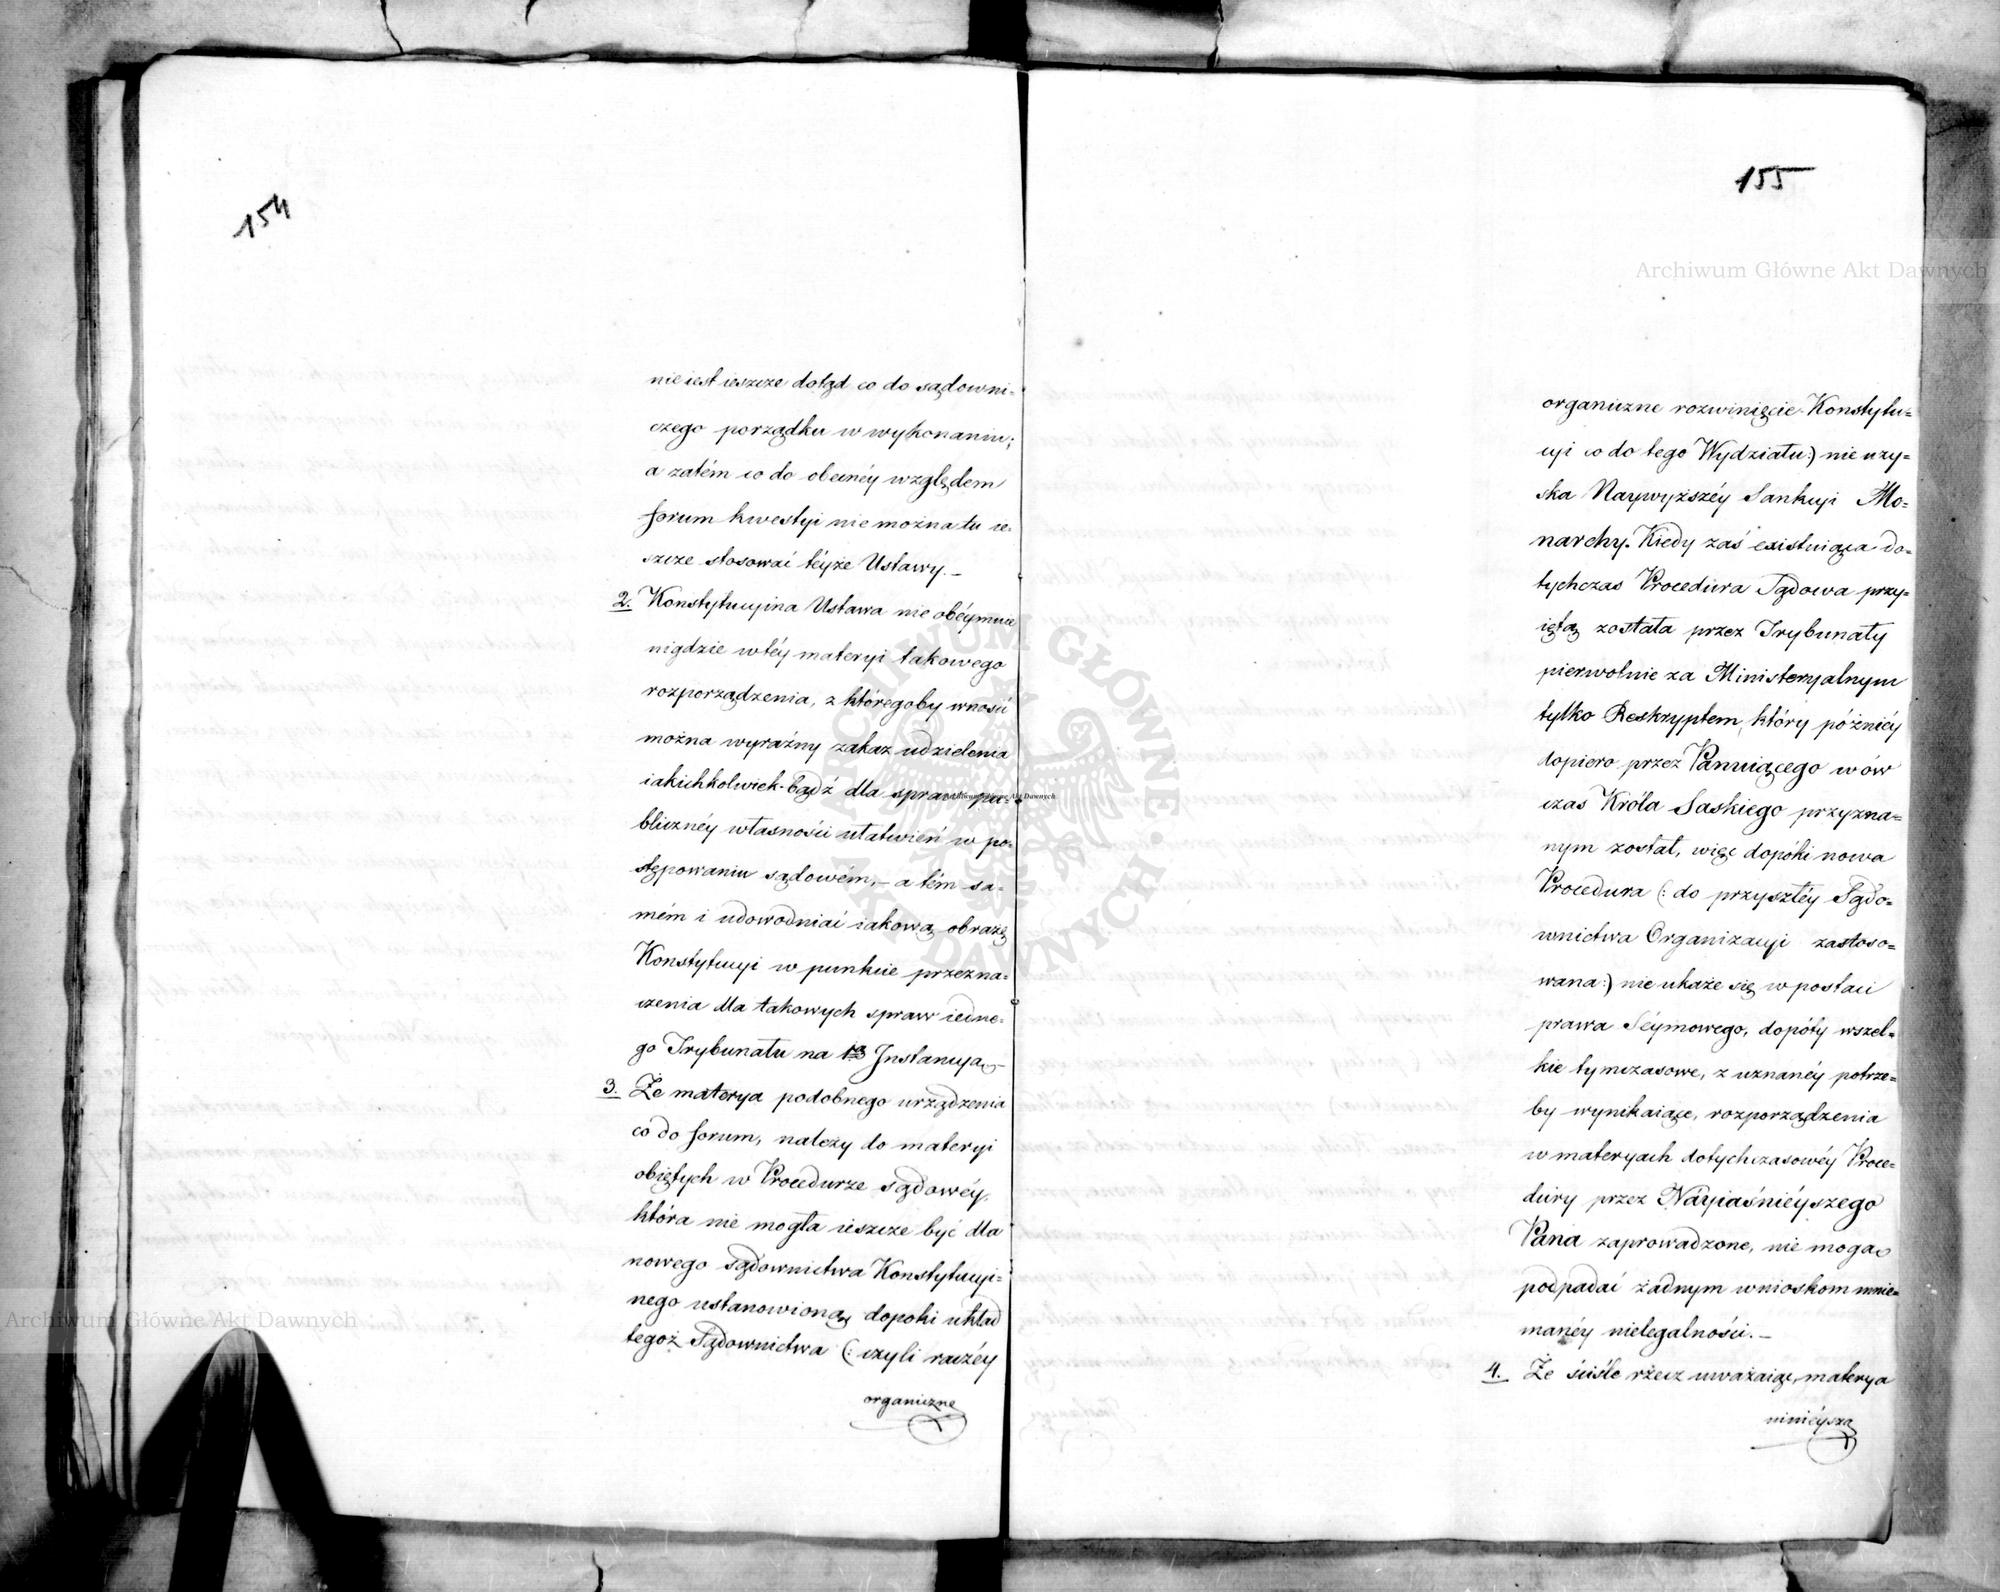 154
nie iest ieszcze dotąd co do sądowni=
czego porządku w wykonaniu;
a zatém co do obecnéy względem
forum kwestyi nie można tu ie=
szcze stosować téyże Ustawy. —
2. Konstytucyina Ustawa nie obéymuie
nigdzie w téy materyi takowego
rozporządzenia, z któregoby wnosić
można wyraźny zakaz udzielenia
iakichkolwiek-bądź dla spraw pu=
blicznéy własności ułatwień w po=
stępowaniu sądowém, — a tém sa=
mém i udowodniać iakową obrazę
Konstytucyi w punkcie przezna=
czenia dla takowych spraw iedne=
go Trybunału na 1ą Instancyą. —
3. Że materya podobnego urządzenia
co do forum, należy do materyi
obiętych w Procedurze sądowéy,
która nie mogła ieszcze być dla
nowego sądownictwa Konstytucyi=
nego ustanowioną, dopoki układ
tegoż Sądownictwa (: czyli raczéy
organiczne
155
organiczne rozwinięcie Konstytu=
cyi co do tego Wydziału:) nie uzy=
ska Naywyższéy Sankcyi Mo=
narchy. Kiedy zaś existuiąca do=
tychczas Procedura Sądowa przy=
iętą została przez Trybunały
pierwotnie za Ministeryalnym
tylko Reskryptem, który późniéy
dopiero przez Panuiącego w ów
czas Króla Saskiego przyzna=
nym został, więc dopóki nowa
Procedura (: do przyszłéy Sądo=
wnictwa Organizacyi zastoso=
wana:) nie ukaże się w postaci
prawa Séymowego, dopóty wszel=
kie tymczasowe, z uznanéy potrze=
by wynikaiące, rozporządzenia
w materyach dotychczasowéy Proce=
dury przez Nayiaśniéyszego
Pana zaprowadzone, nie mogą
podpadać żadnym wnioskom mnie=
manéy nielegalności. —
4. Że ściśle rzecz uważaiąc, materya
ninieysza
Archiwum Główne Akt Dawnych
Archiwum Główne Akt Dawnych
Archiwum Główne Akt Dawnych
ARCHIWUM GŁÓWNE AKT DAWNYCH